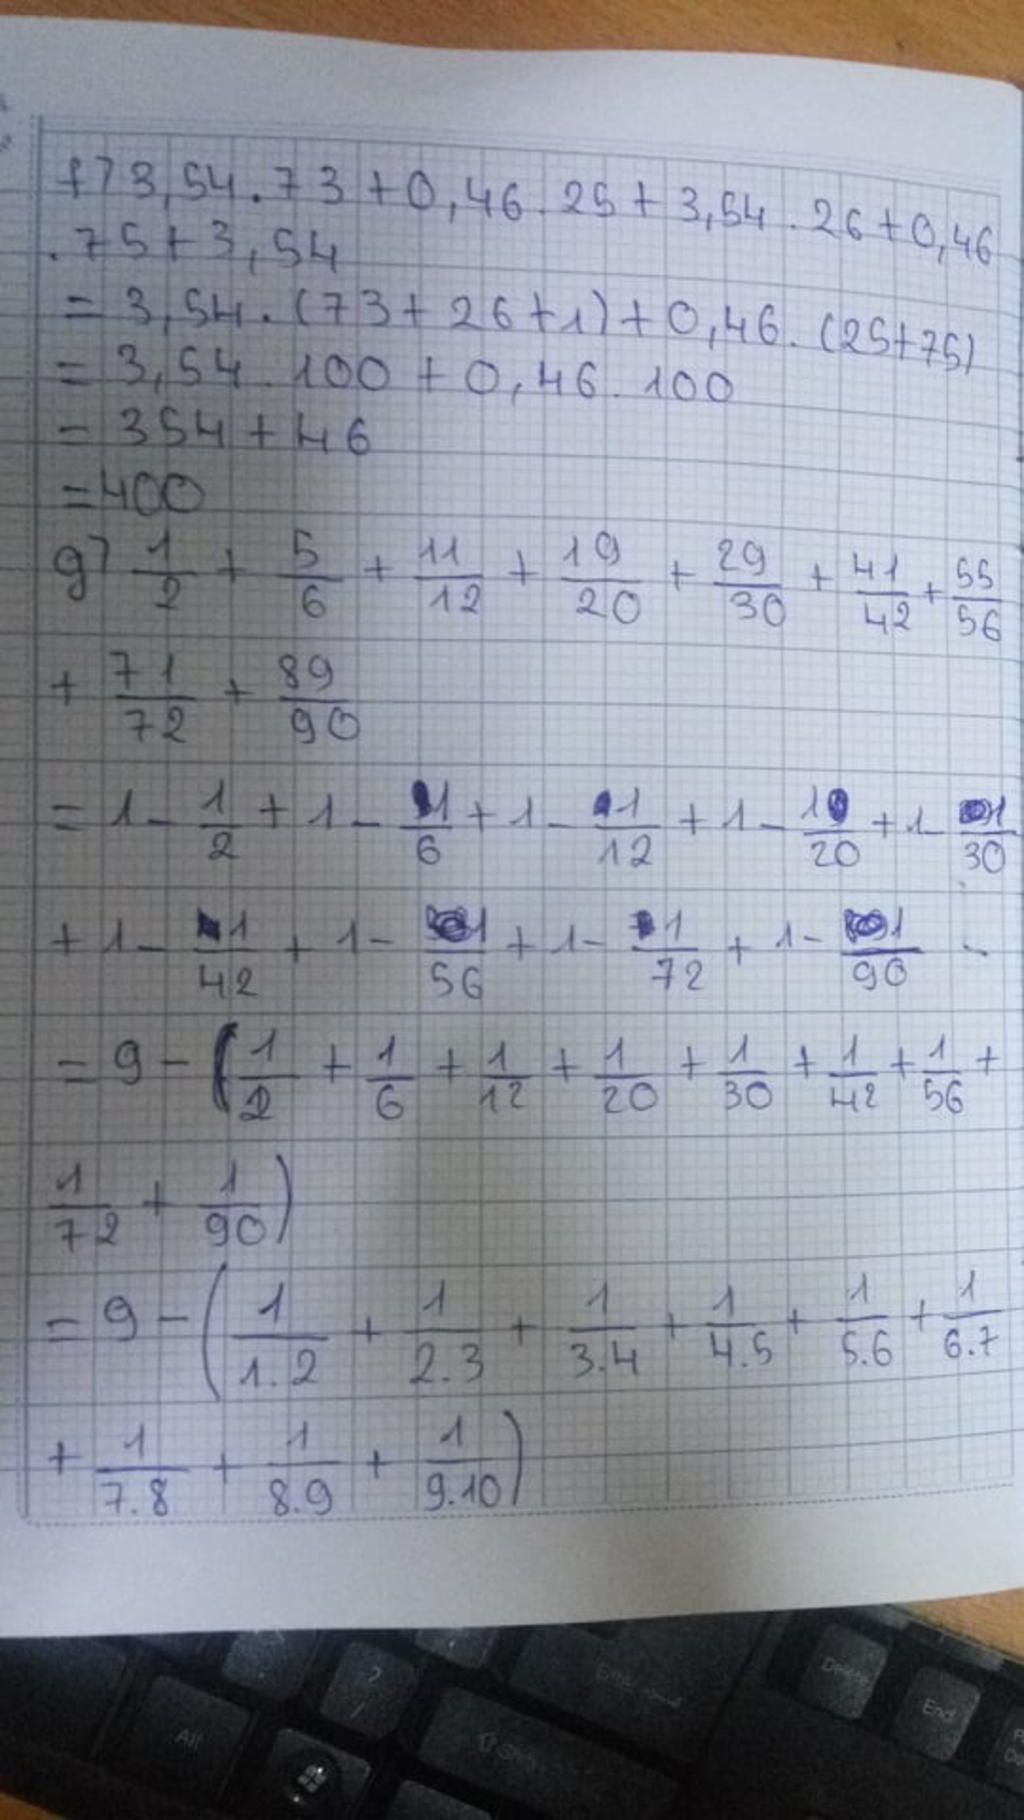 f) 3,54 . 73 + 0,46 . 25 + 3,54 . 26 + 0,46
. 75 + 3,54
= 3,54 . (73 + 26 + 1) + 0,46 . (25 + 75)
= 3,54 . 100 + 0,46 . 100
= 354 + 46
= 400
g) 1/2 + 5/6 + 11/12 + 19/20 + 29/30 + 41/42 + 55/56
+ 71/72 + 89/90
= 1 - 1/2 + 1 - 1/6 + 1 - 1/12 + 1 - 1/20 + 1 - 1/30
+ 1 - 1/42 + 1 - 1/56 + 1 - 1/72 + 1 - 1/90 -
= 9 - (1/2 + 1/6 + 1/12 + 1/20 + 1/30 + 1/42 + 1/56 +
1/72 + 1/90)
= 9 - (1/1.2 + 1/2.3 + 1/3.4 + 1/4.5 + 1/5.6 + 1/6.7
+ 1/7.8 + 1/8.9 + 1/9.10)
Alt
? /
Shift
Enter
Delete
End